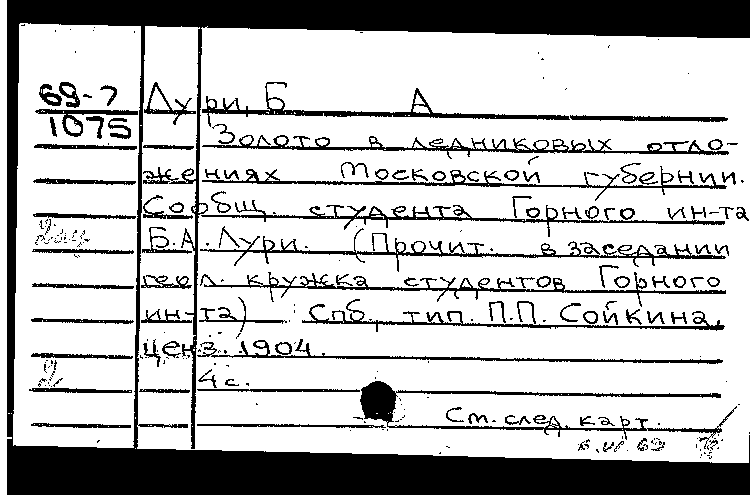 69-7 Лури, Б А
1075
Золото в ледниковых отло-
жениях Московской губернии.
Сообщ. студента Горного ин-та
Б.А. Лури. (Прочит. в заседании
геол. кружка студентов Горного
ин-та) Спб., тип. П.П. Сойкина,
ценз. 1904.
2 4 с.
См. след. карт.
69